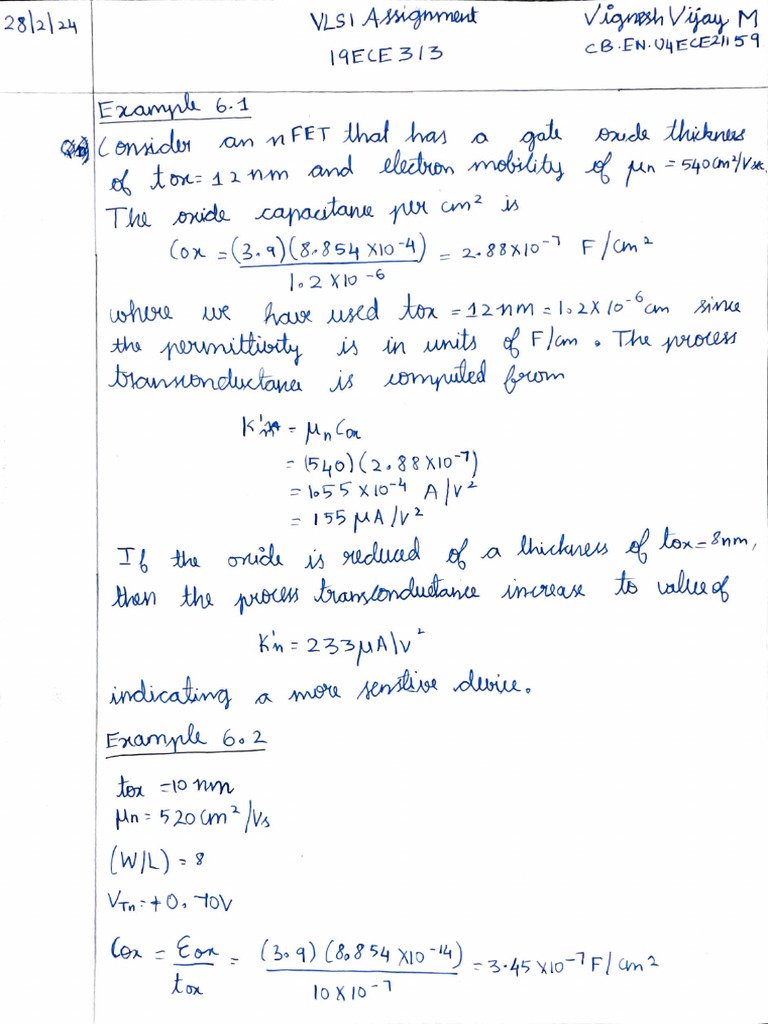 28/2/24
VLSI Assignment
19ECE313
Vignesh Vijay M
CB.EN.U4ECE21159
Example 6.1
Consider an nFET that has a gate oxide thickness
of tox = 12 nm and electron mobility of μn = 540 cm²/Vsec.
The oxide capacitane per cm² is
Cox = (3.9)(8.854 × 10⁻⁴) / 1.2 × 10⁻⁶ = 2.88 × 10⁻⁷ F/cm²
where we have used tox = 12 nm = 1.2 × 10⁻⁶ cm since
the permittivity is in units of F/cm. The process
transconductance is computed from
K'n = μn Cox
= (540)(2.88 × 10⁻⁷)
= 1.55 × 10⁻⁴ A/V²
= 155 μA/V²
If the oxide is reduced of a thickness of tox = 8nm,
then the process transconductance increase to value of
K'n = 233 μA/V²
indicating a more senstive device.
Example 6.2
tox = 10 nm
μn = 520 cm²/Vs
(W/L) = 8
VTn = +0.70V
Cox = Eox / tox = (3.9)(8.854 × 10⁻¹⁴) / 10 × 10⁻⁷ = 3.45 × 10⁻⁷ F/cm²